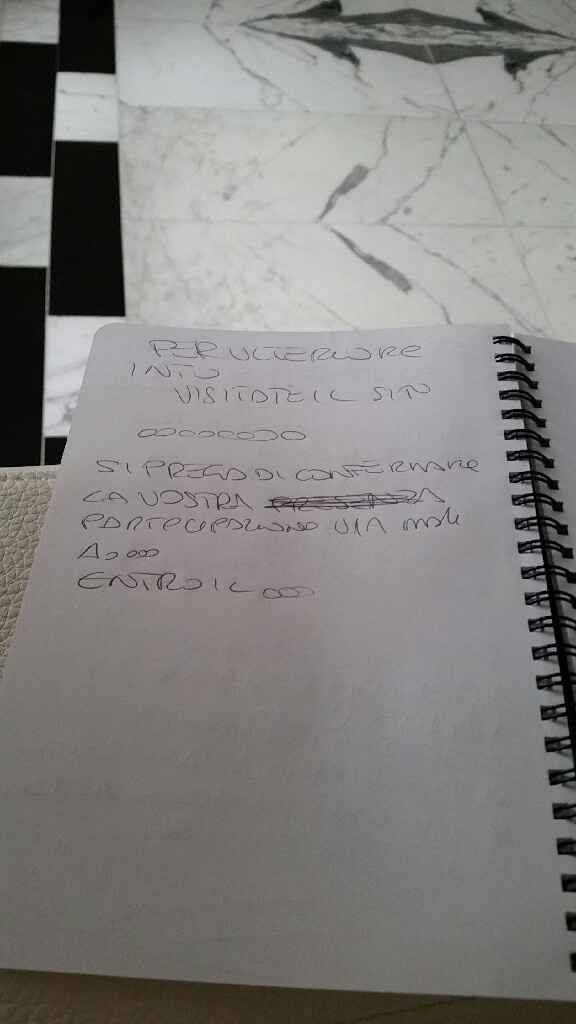 PER ULTERIORE
INFO
VISITATE IL SITO
oooooooo
SI PREGA DI CONFERMARE
LA VOSTRA PRESENZA
PARTECIPAZIONE VIA MAIL
A oooo
ENTRO IL ooo